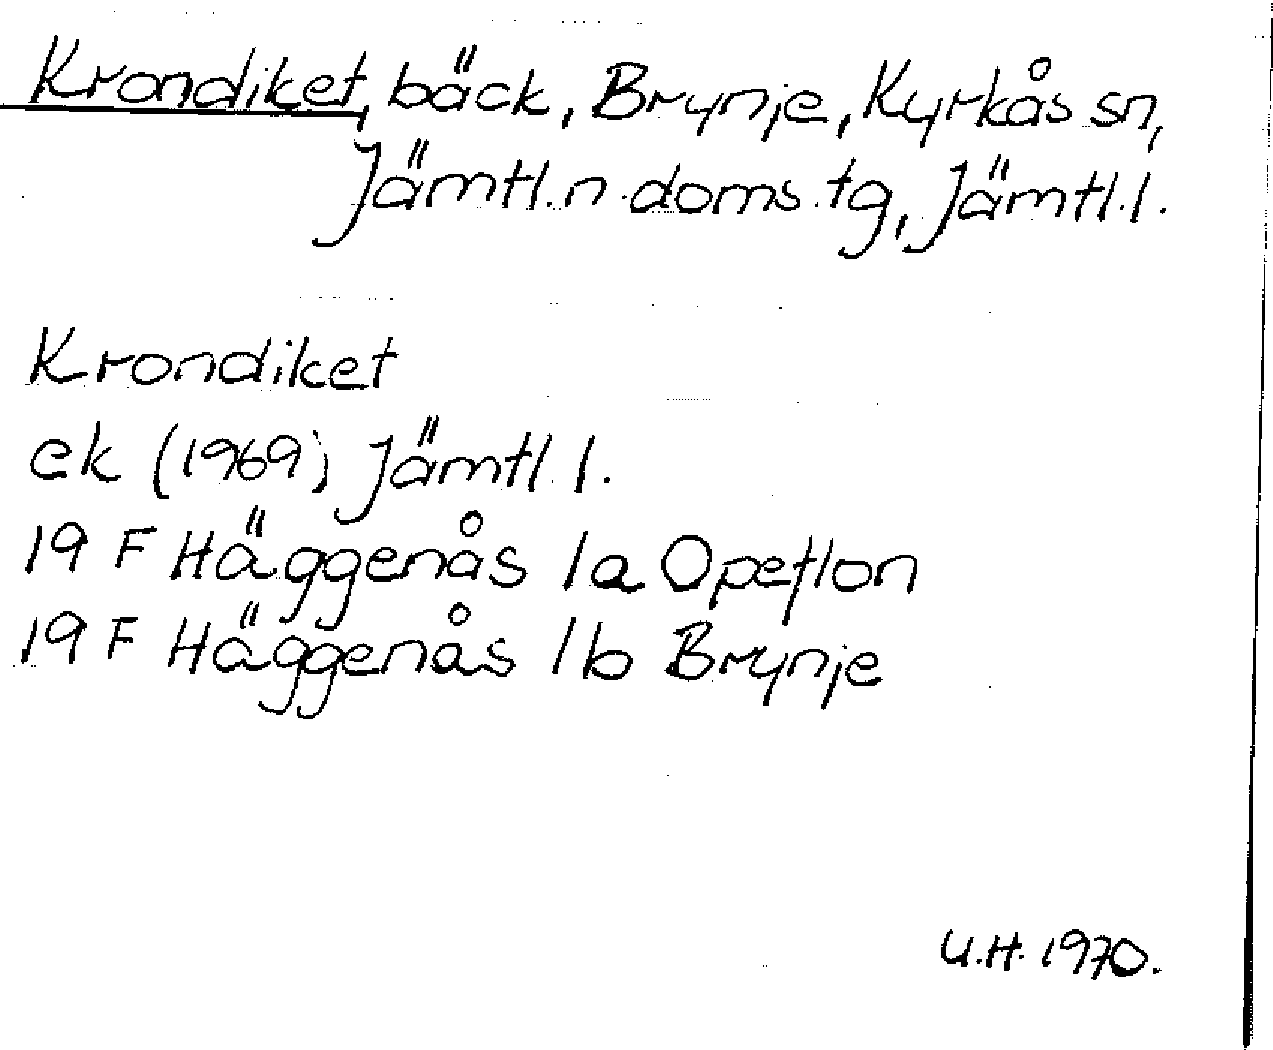 Krondiket, bäck, Brynje, Kyrkås sn,
Jämtl. n. doms. tg, Jämtl. l.
Krondiket
ek (1969) Jämtl. l.
19 F Häggenås 1a Opetlon
19 F Häggenås 1b Brynje
U.H. 1970.